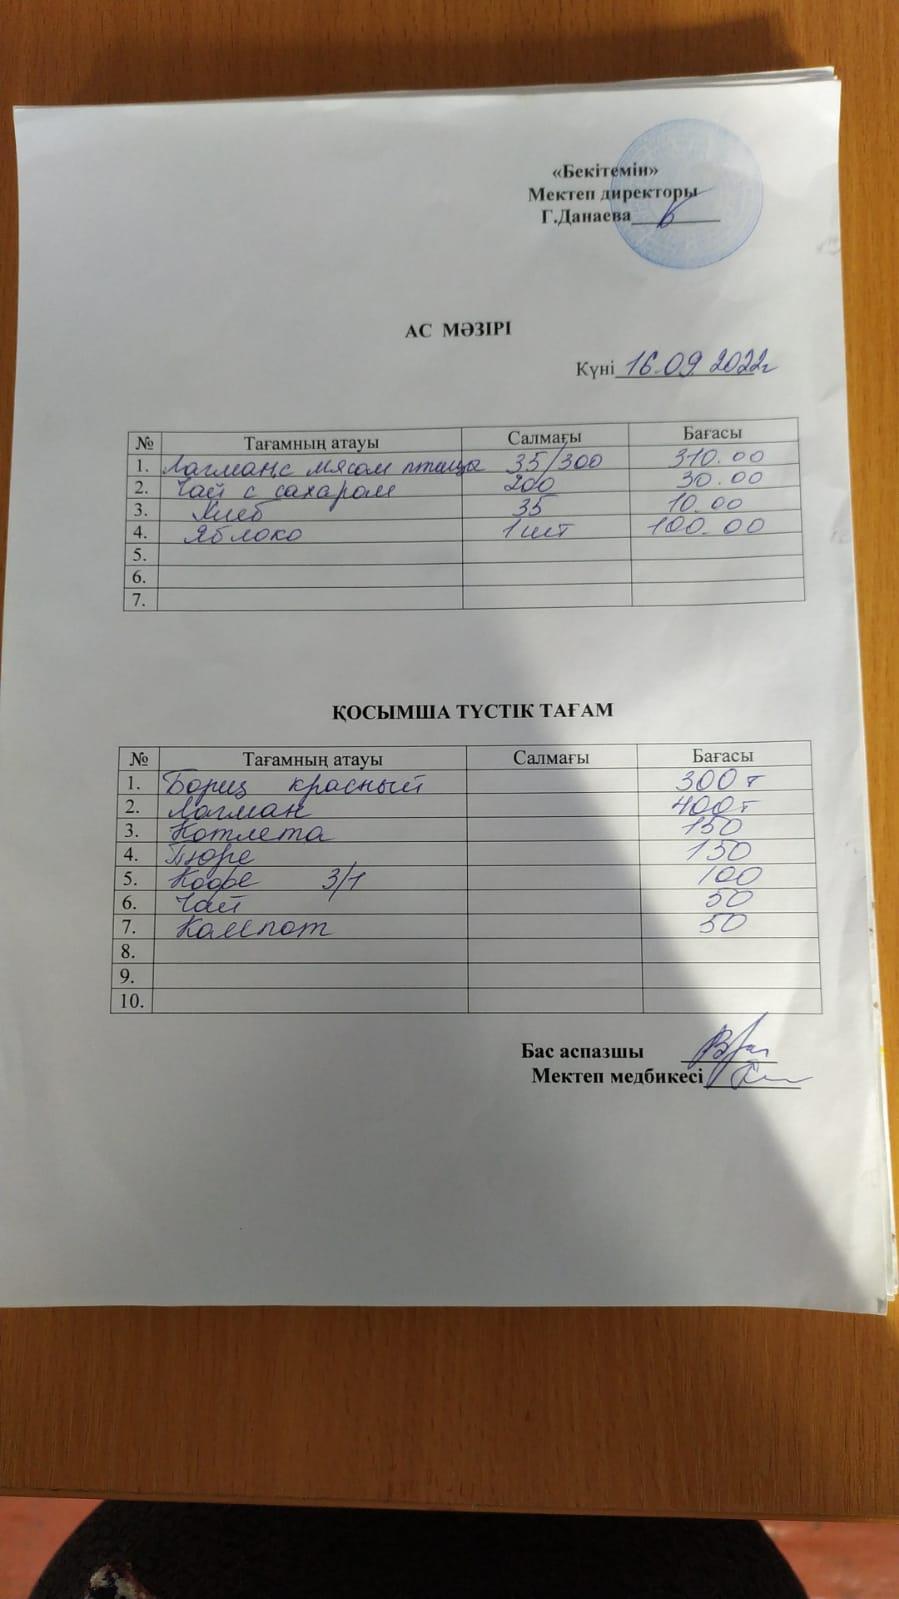 «Бекітемін»
Мектеп директоры
Г.Данаева
АС МӘЗІРІ
Күні 16.09.2022г
№ Тағамның атауы Салмағы Бағасы
1. Лагман с мясом птицы 35/300 310.00
2. Чай с сахаром 200 30.00
3. Хлеб 35 10.00
4. Яблоко 1 шт 100.00
5.
6.
7.
ҚОСЫМША ТҮСТІК ТАҒАМ
№ Тағамның атауы Салмағы Бағасы
1. Борщ красный 300 т
2. Лагман 400 т
3. Котлета 150
4. Пюре 150
5. Кофе 3/1 100
6. Чай 50
7. Компот 50
8.
9.
10.
Бас аспазшы
Мектеп медбикесі